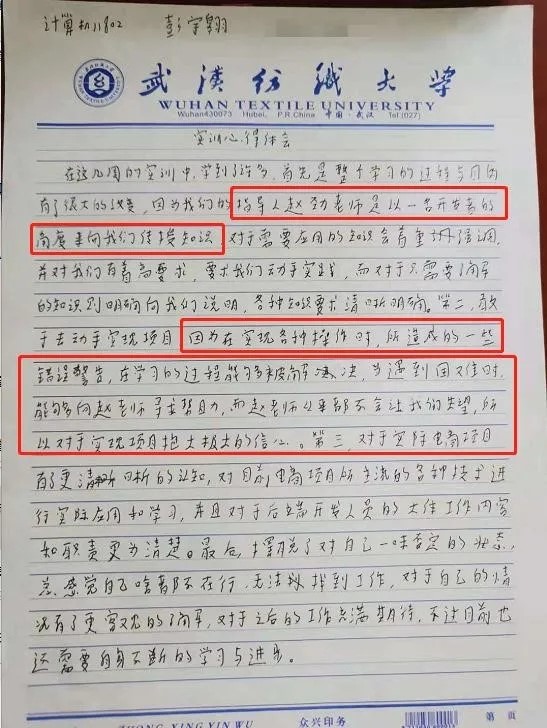 计算机11802 彭宇翔
武汉纺织大学
WUHAN TEXTILE UNIVERSITY
Wuhan430073 Hubei, P.R.China 中国·武汉 Tel(027)
实训心得体会
在这几周的实训中,学到了许多,首先是整个学习的过程与目的
有了很大的改变,因为我们的指导人赵劲老师是以一名开发者的
高度来向我们传授知识,对于需要应用的知识会着重强调,
并对我们有着高要求,要求我们动手实践,而对于只需要了解
的知识则明确向我们说明,各种知识要求清晰明确。第二,敢
于去动手实现项目,因为在实现各种操作时,所造成的一些
错误警告,在学习的过程能够被解决,当遇到困难时,
能够向赵老师寻求帮助,而赵老师从来都不会让我们失望,所
以对于实现项目抱大极大的信心。第三,对于实际电商项目
有了更清晰的认知,对目前电商项目所主流的各种技术进
行实际应用和学习,并且对于后端开发人员的大体工作内容
和职责更为清楚。最后,摆脱了对自己一味否定的状态,
总感觉自己啥都不在行,无法找到工作,对于自己的情
况有了更客观的了解,对于之后的工作充满期待,不过目前也
还需要自身不断的学习与进步。
ZHONG XING YIN WU 众兴印务 第 页